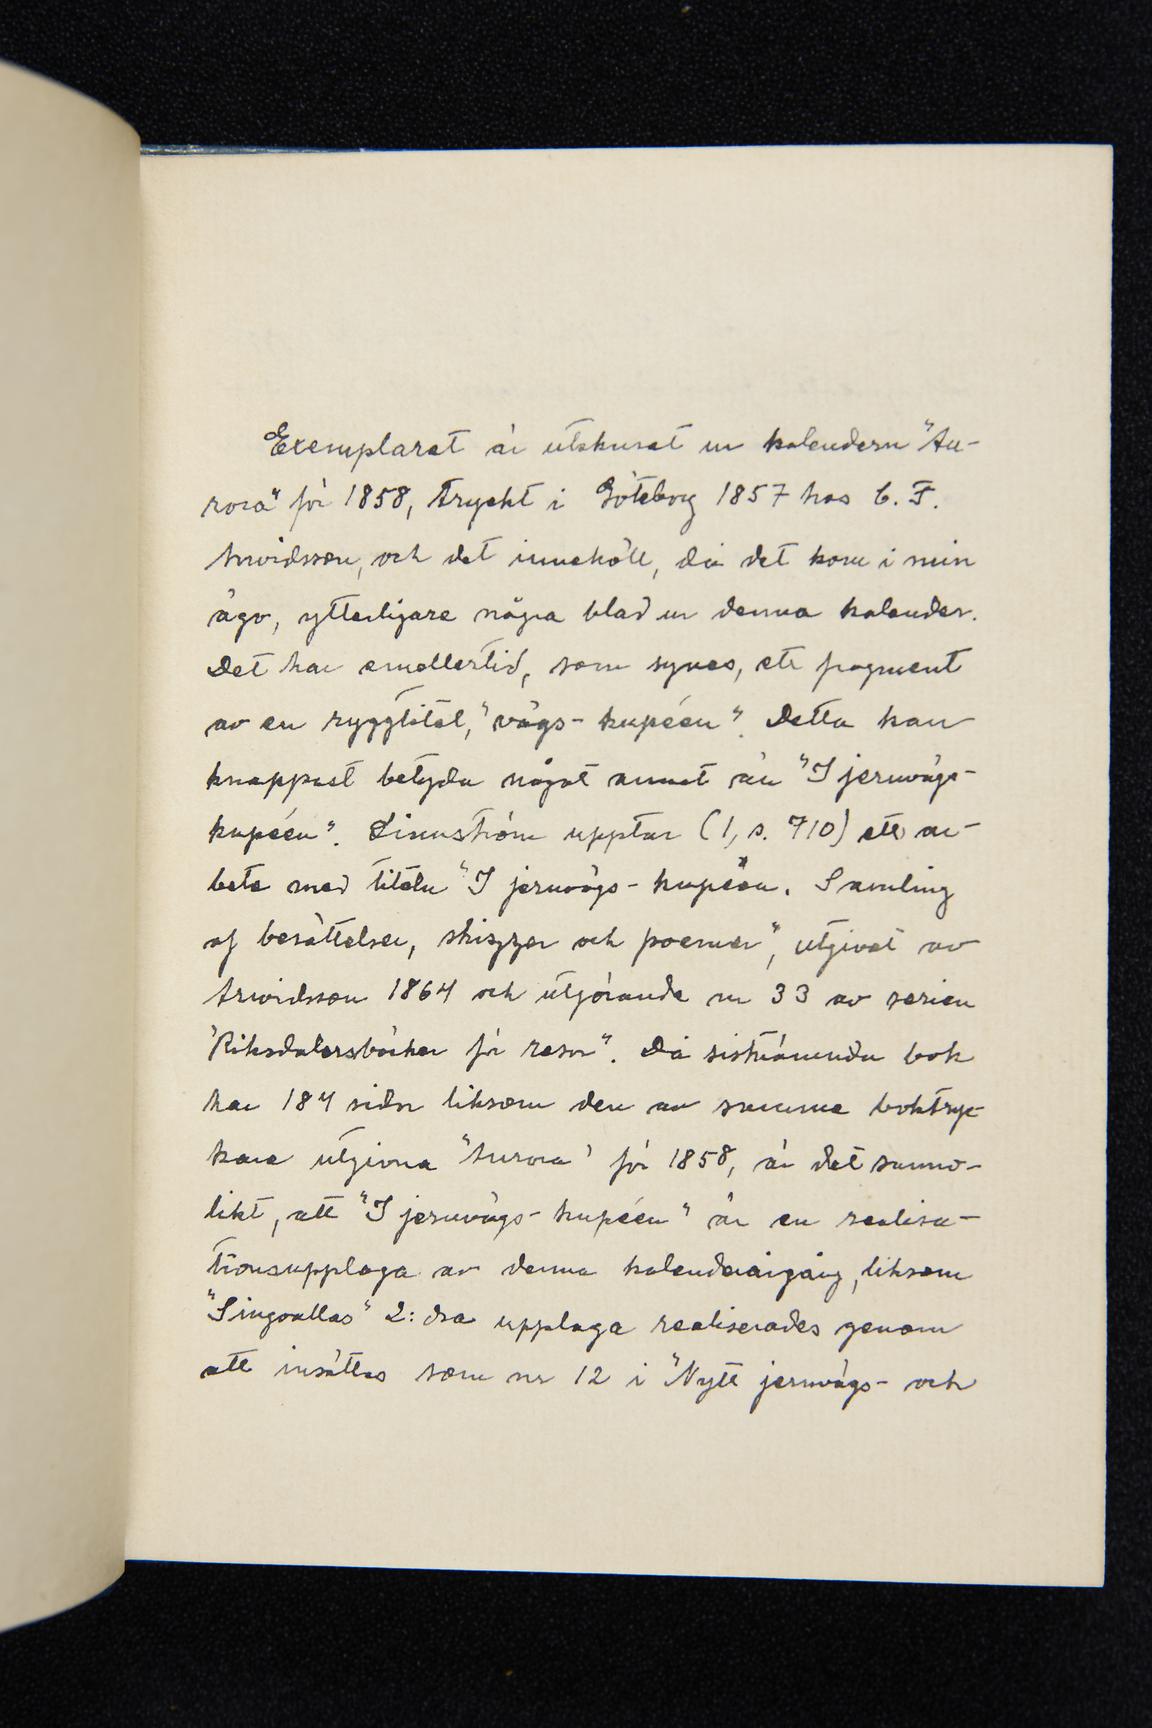 Exemplaret är utskuret ur kalendern "Au-
rora" för 1858, tryckt i Göteborg 1857 hos C. F.
Arwidsson, och det innehöll, då det kom i min
ägo, ytterligare några blad ur denna kalender.
Det har emellertid, som synes, ett fragment
av en ryggtitel, "vägs-kupéen". Detta kan
knappast betyda något annat än "I jernvägs-
kupéen". Linnström upptar (1, s. 710) ett ar-
bete med titeln "I jernvägs-kupéen. Samling
af berättelser, skizzer och poemer", utgivet av
Arwidsson 1864 och utgörande nr 33 av serien
"Riksdalersböcker för resor". Då sistnämnda bok
har 184 sidor liksom den av samma boktryc-
kare utgivna "Aurora" för 1858, är det sanno-
likt, att "I jernvägs-kupéen" är en realisa-
tionsupplaga av denna kalenderårgång, liksom
"Singoallas" 2:dra upplaga realiserades genom
att insättas som nr 12 i "Nytt jernvägs- och